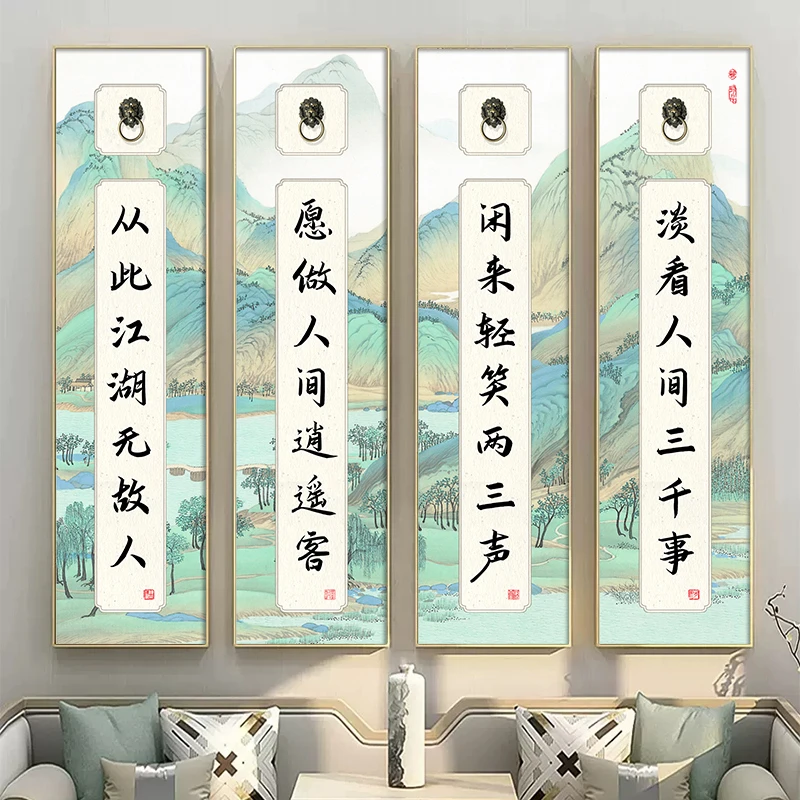 淡看人间三千事
闲来轻笑两三声
愿做人间逍遥客
从此江湖无故人